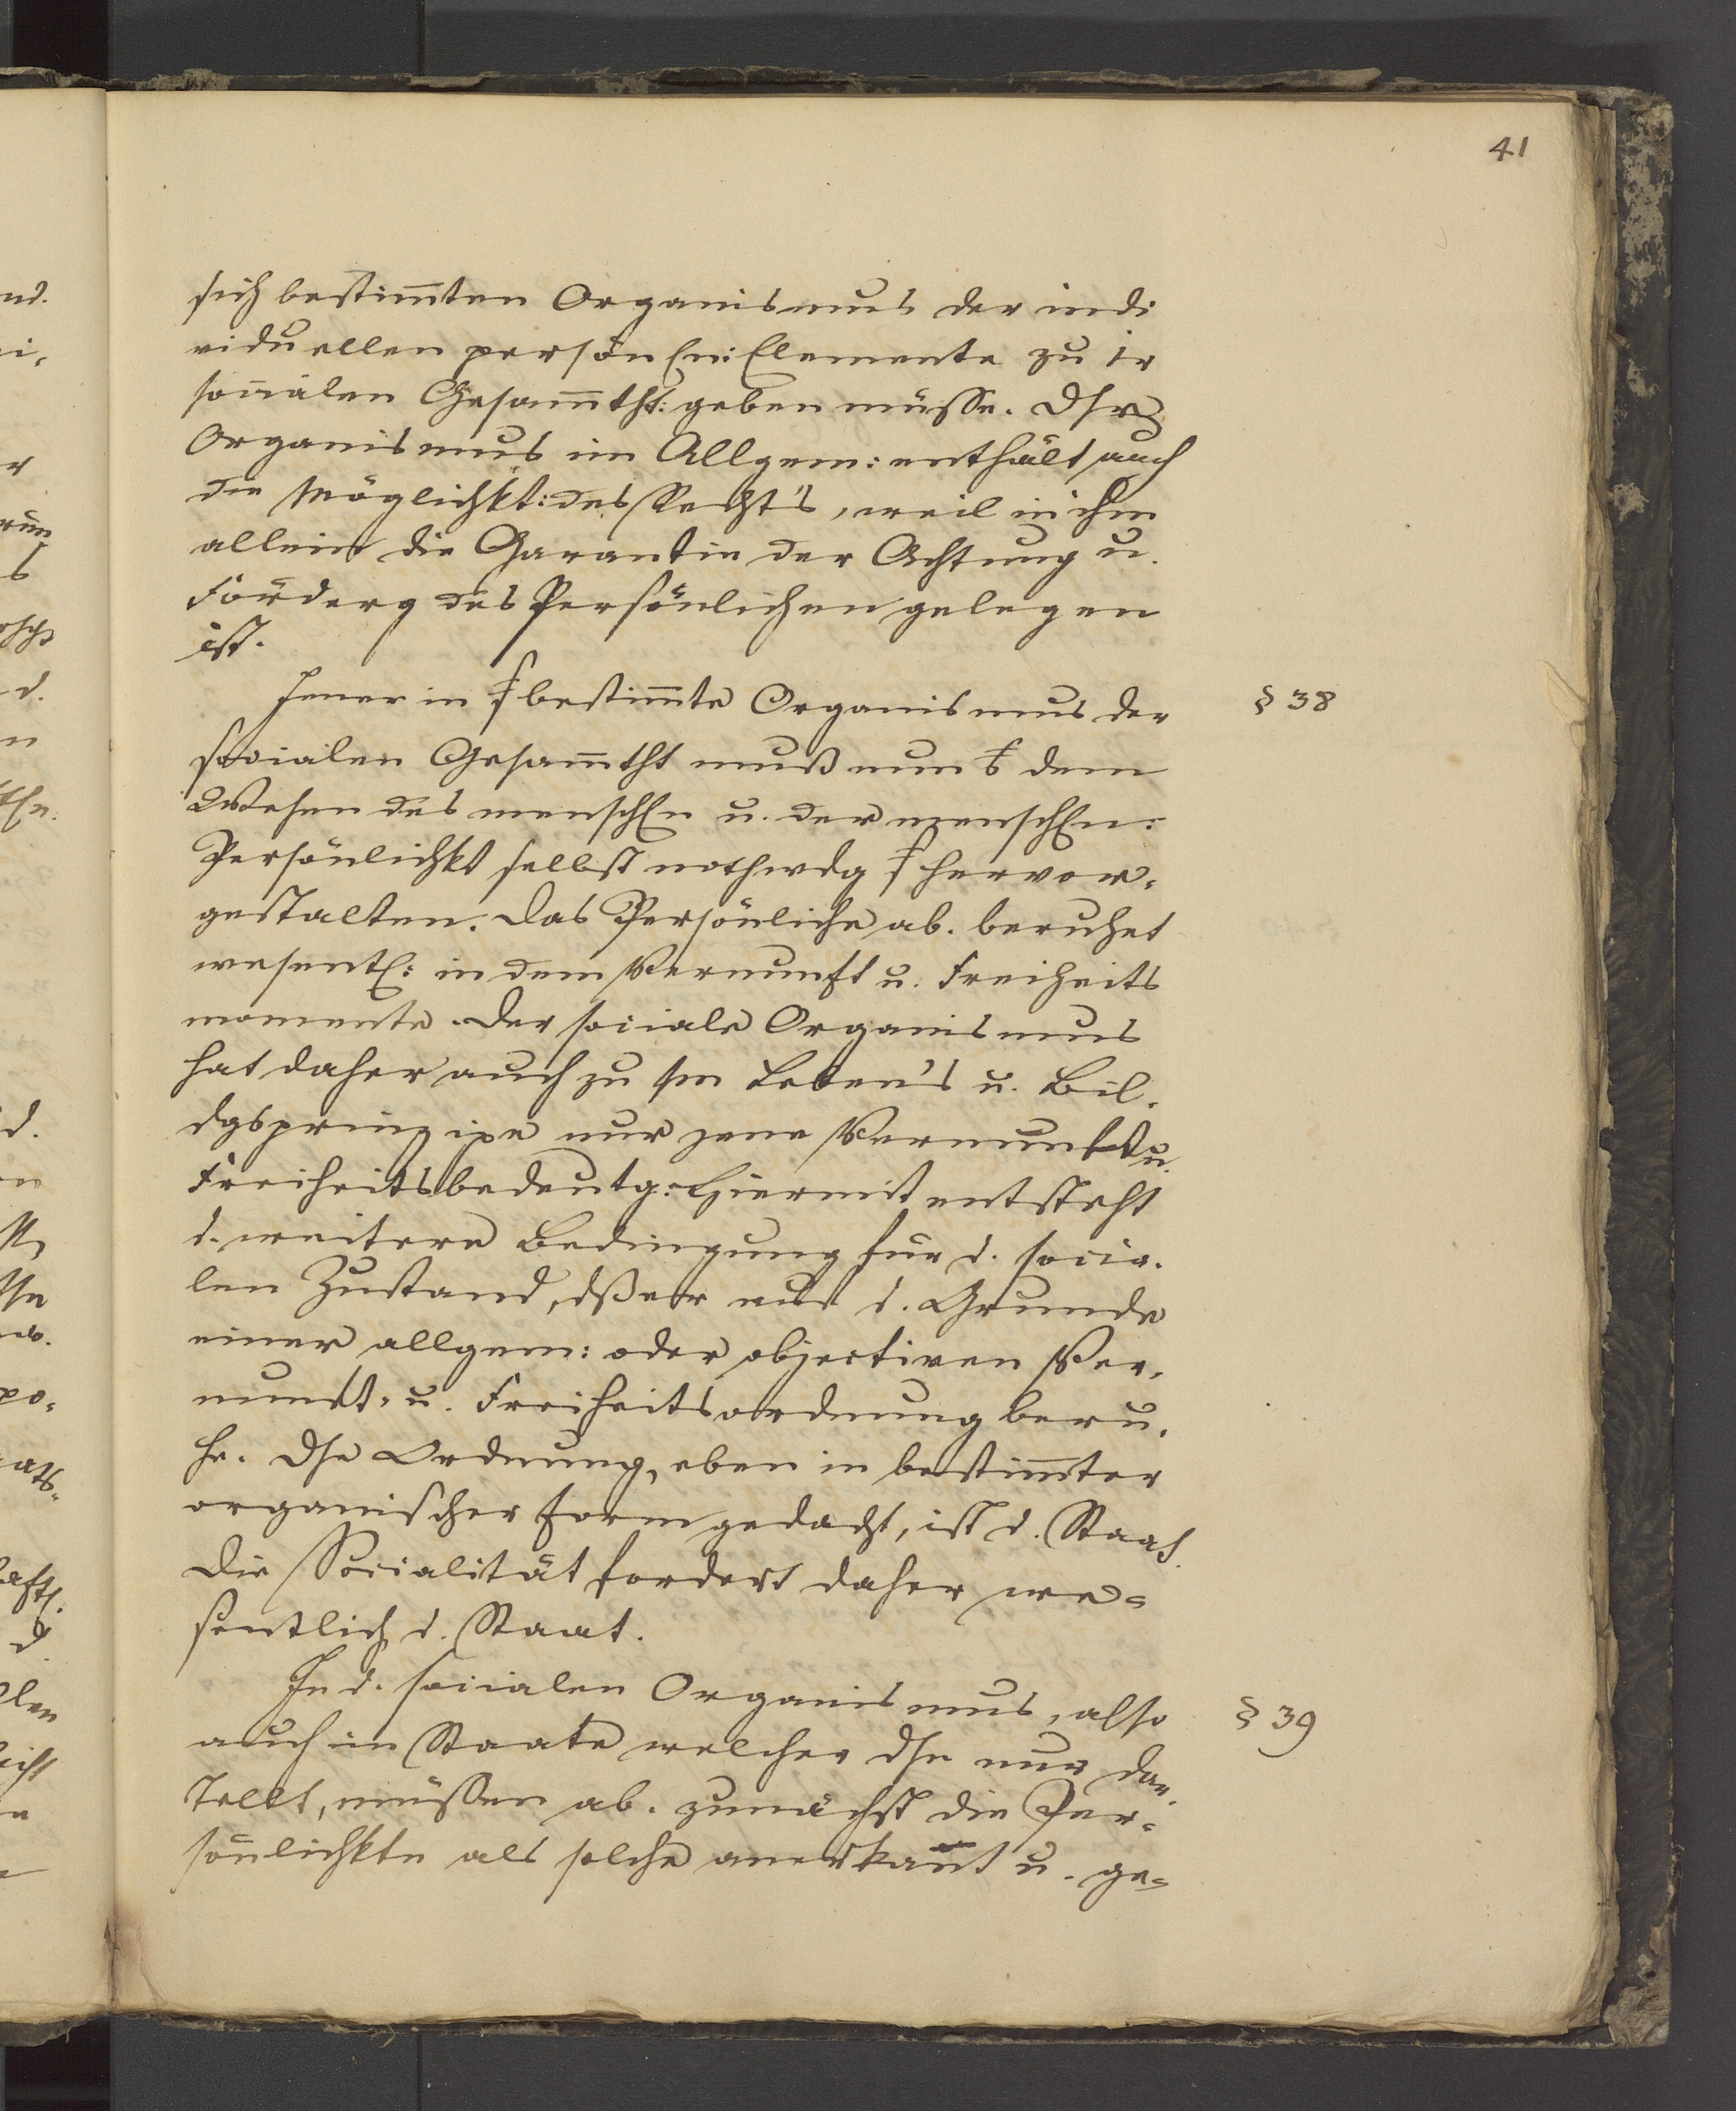 41
sich bestim̅ten Organismus der indi
viduellen persön len: Elemente zu ir
socialen Gesam̅tht: geben müsse. Dsr
Organismus im Allgem: enthält auch
die Möglichkt: des Recht's, weil in ihm
allein die Garantie der Achtung u.
Förderg des Persönlichen gelegen
ist.
Jener in sich bestim̅te Organismus der
§ 38
socialen Gesam̅tht muß nun dem
Wesen des menschen u. der menschln:
Persönlichkt selbst nothwdg sich hervor-
gestalten. Das Persönliche ab. beruhet
wesentl: in dem Vernunft u. Freiheits
momente. Der sociale Organismus
hat daher auch zu sm Leben's u. Bil-
dgsprinzipe nur jene Vernunft u.
Freiheitsbedeutg: Hiermit entsteht
d. weitere Bedingung für d. socia-
len Zustand, dß er auf d. Grunde
einer allgem: oder objectiven Ver-
nunft- u. Freiheitsordnung beru-
he. Dse Ordnung, eben in bestim̅ter
organischer Form gedacht, ist d. Staat.
Die Socialität fordert daher we-
sentlich d. Staat.
In d. socialen Organismus, also
§ 39
auch im Staate welcher dsn nur dar-
stellt, müssen ab. zunächst die Per-
sönlichktn als solche anerkan̅t u. ge-